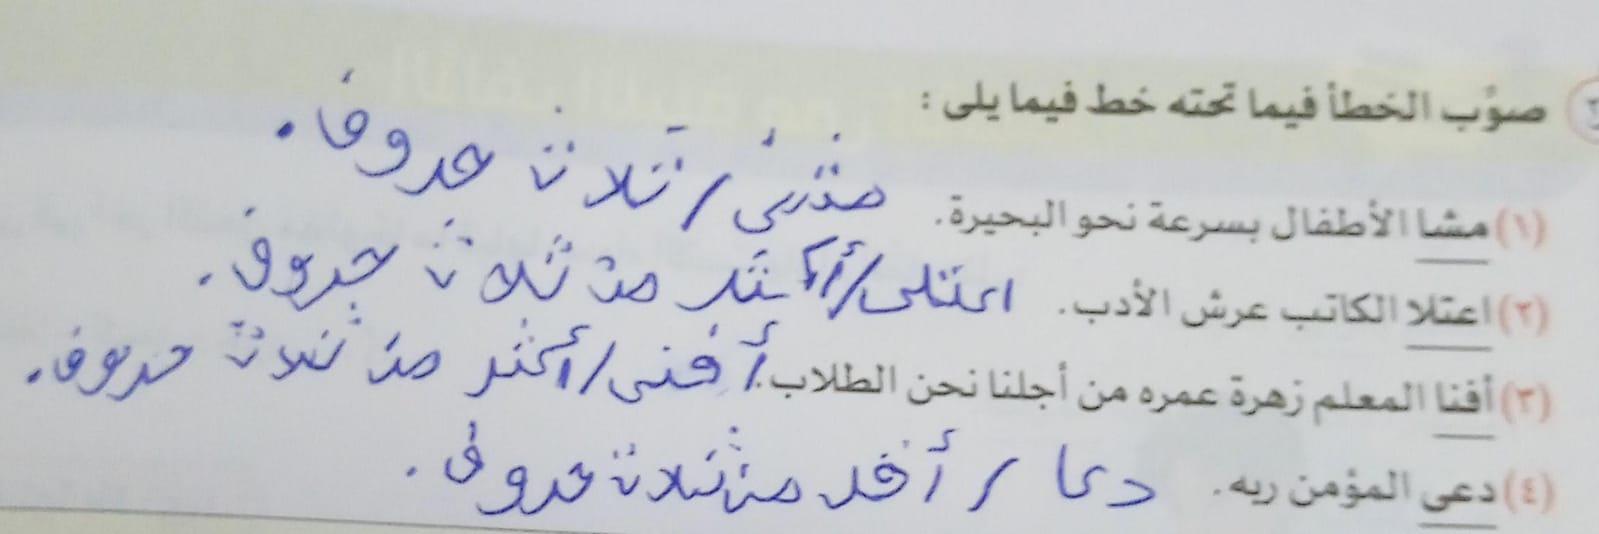 صوِّب الخطأ فيما تحته خط فيما يلى :
(١) مشا الأطفال بسرعة نحو البحيرة. مشى / ثلاث حروف.
(٢) اعتلا الكاتب عرش الأدب. اعتلى / أكثر من ثلاث حروف.
(٣) أفنا المعلم زهرة عمره من أجلنا نحن الطلاب. أفنى / أكثر من ثلاث حروف.
(٤) دعى المؤمن ربه. دعا / أقل من ثلاث حروف.